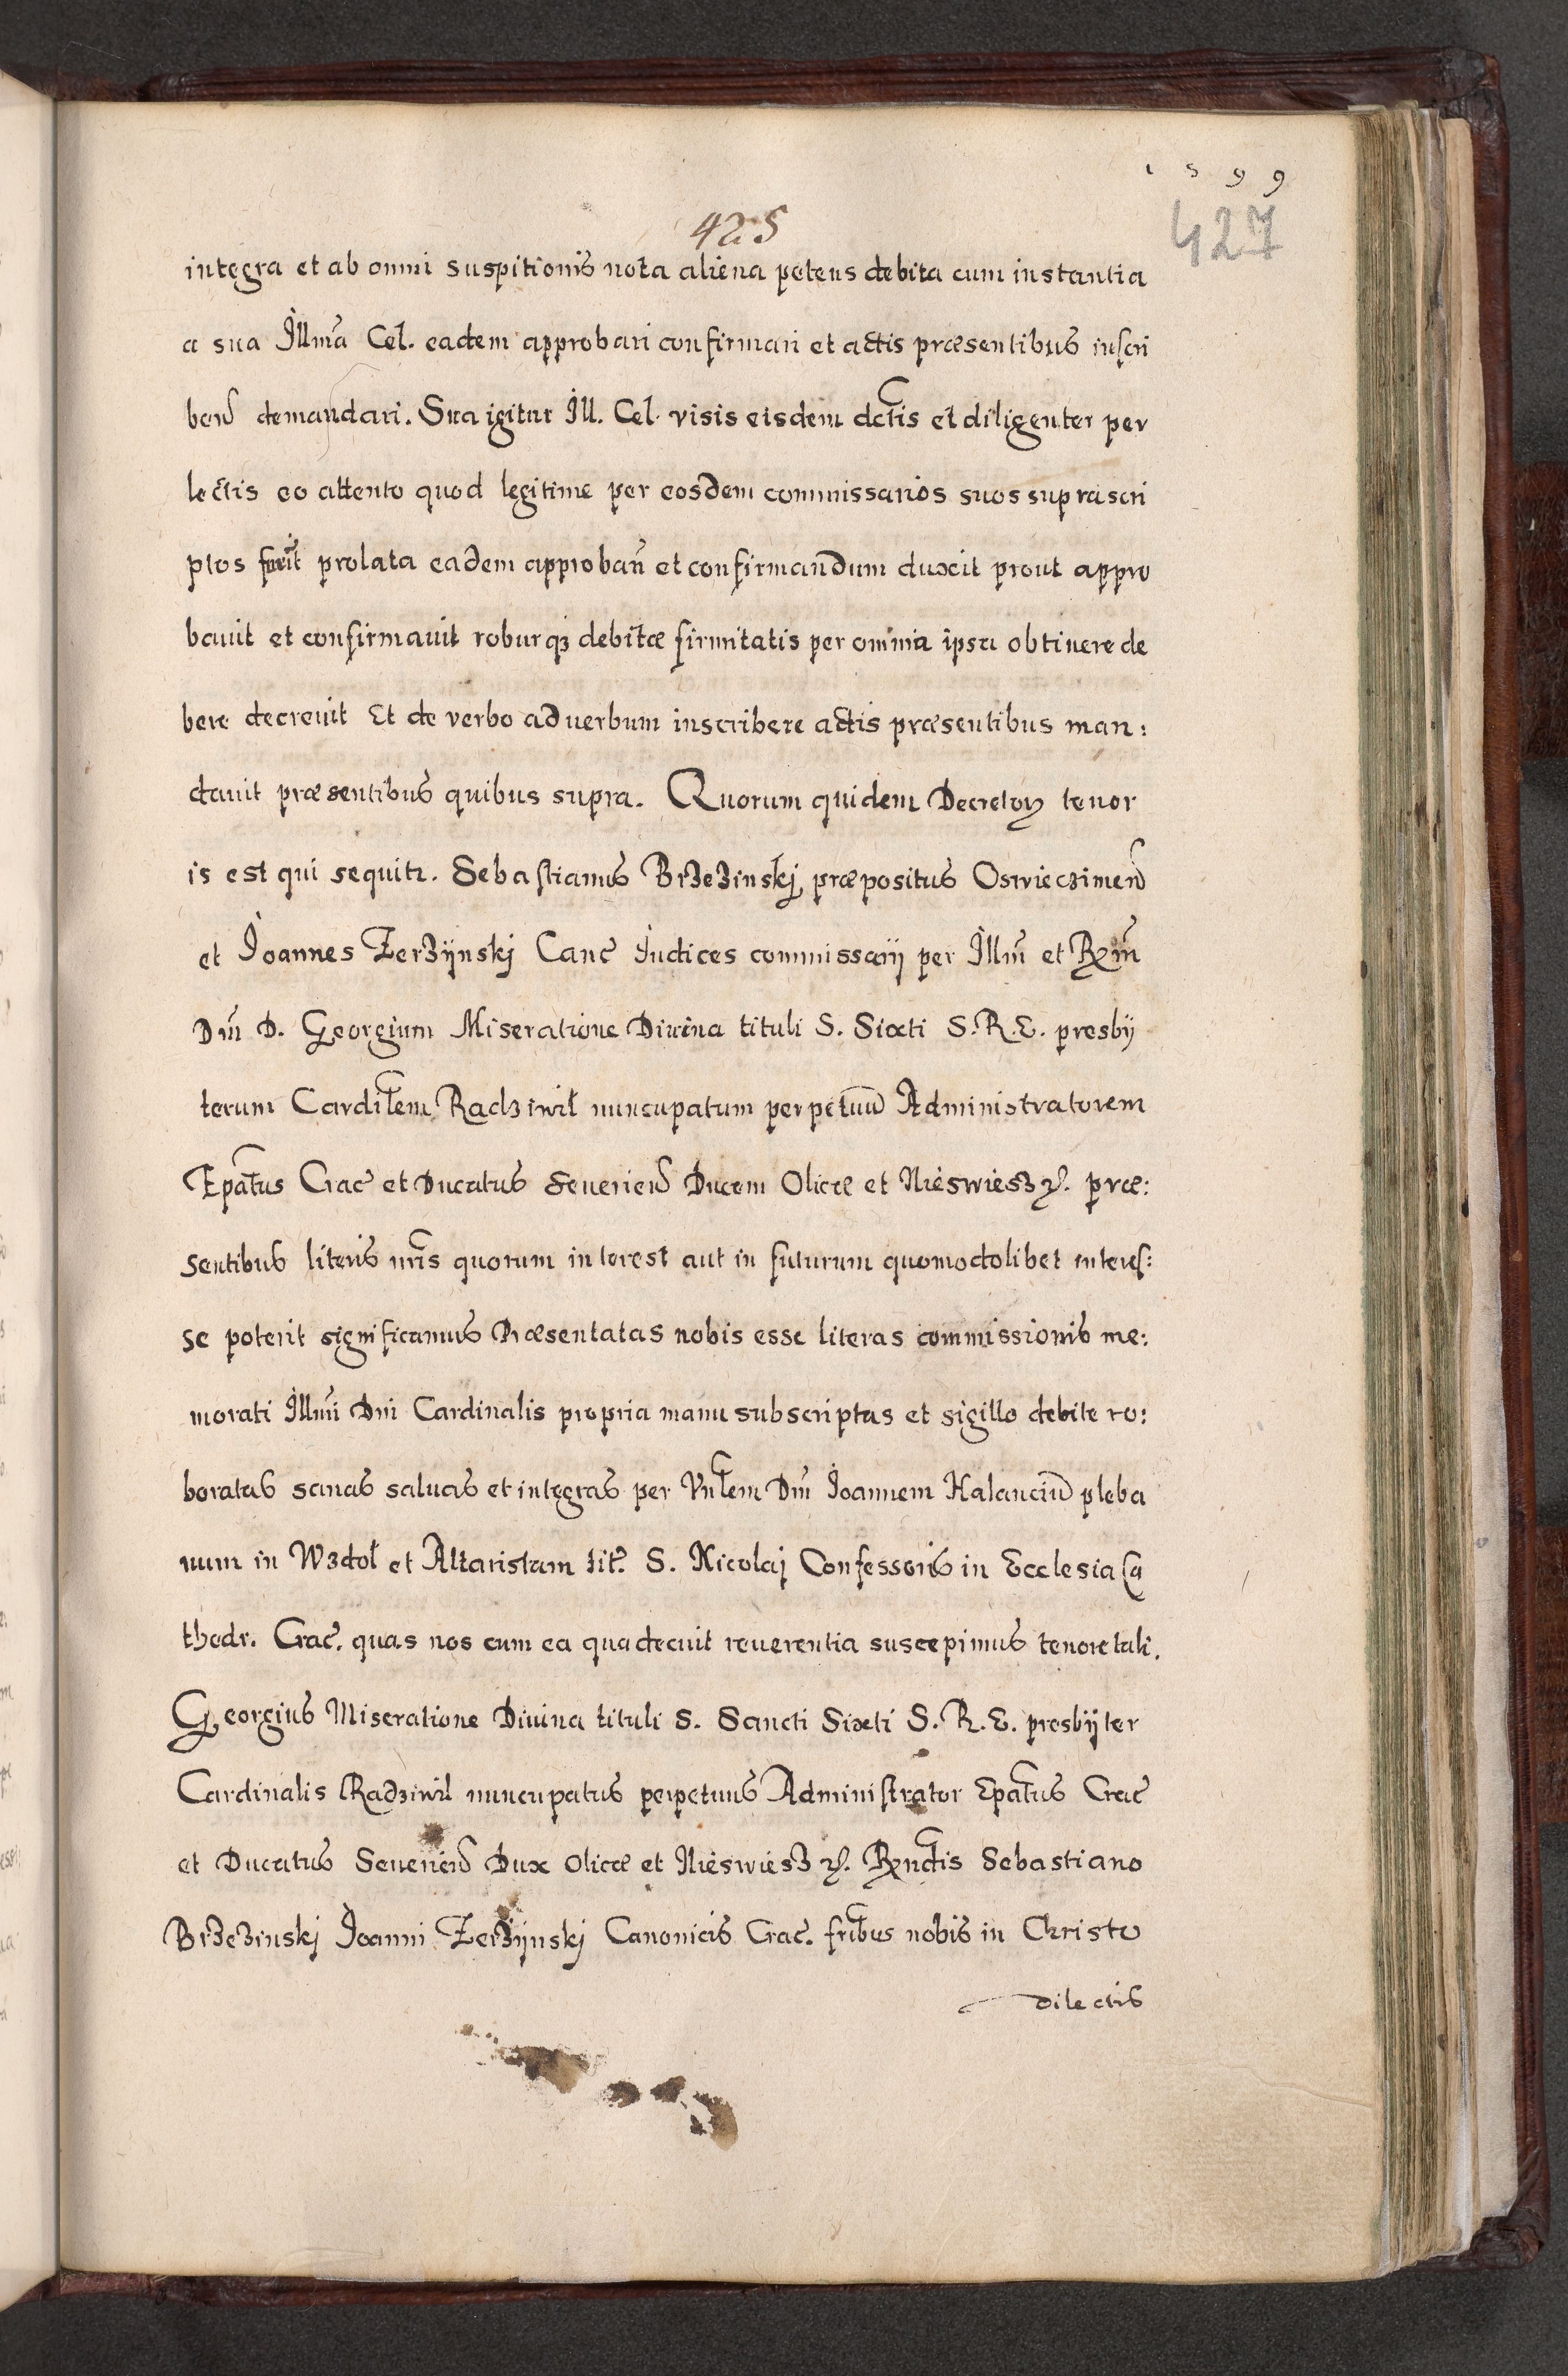 1599
427
425
integra et ab omni suspitionis nota aliena petens debita cum instantia
a sua Illma Cel. eadem approbari confirmari et actis præsentibus inscri
ben demandari. Sua igitur Ill. Cel. visis eisdem dctis et diligenter per
lectis eo attento quod legitime per eosdem commissarios suos suprascri
ptos prolata eadem approban et confirmandum duxit prout appro
bauit et confirmauit roburq3 debitæ firmitatis per omnia ipsa obtinere de
bere decreuit Et de verbo ad uerbum inscribere actis præsentibus man:
dauit præsentibus quibus supra. Quorum quidem Decretoꝝ tenor
is est qui sequitr. Sebastianus Brzezinskj præpositus Oswieczimen
et Joannes Zerzijnskj Canc Judices commissarij per Illm et Rxm
Dm D. Georgium Miseratione Diuina tituli S. Sixti S.R.E. presby
terum Cardilem Radziwił nuncupatum perpetuū Administratorem
Epatus Crac et Ducatus Seuerien Ducem Olicæ et Nieswiesz &. præ:
sentibus literis nris quorum interest aut in futurum quomodolibet interes:
se poterit significamus Præsentatas nobis esse literas commissionis me:
morati Illmi Dni Cardinalis propria manu subscriptas et sigillo debite ro:
boratas sanas saluas et integras per Vnlem Dm Joannem Kalanciū pleba
num in Wzdoł et Altaristam tit. S. Nicolaj Confessoris in Ecclesia Ca
thedr. Crac. quas nos eum ea qua decuit reuerentia suscepimus tenore tali.
Georgius Miseratione Diuina tituli S. Sancti Sixti S. R. E. presbijter
Cardinalis Radziwil nuncupatus perpetuus Administrator Epatus Crac
et Ducatus Seuerien Dux Olicæ et Nieswiesz &. Rxndis Sebastiano
Brzezinskj Joanni Zerzijnskj Canonicis Crac. fribus nobis in Christo
dilectis